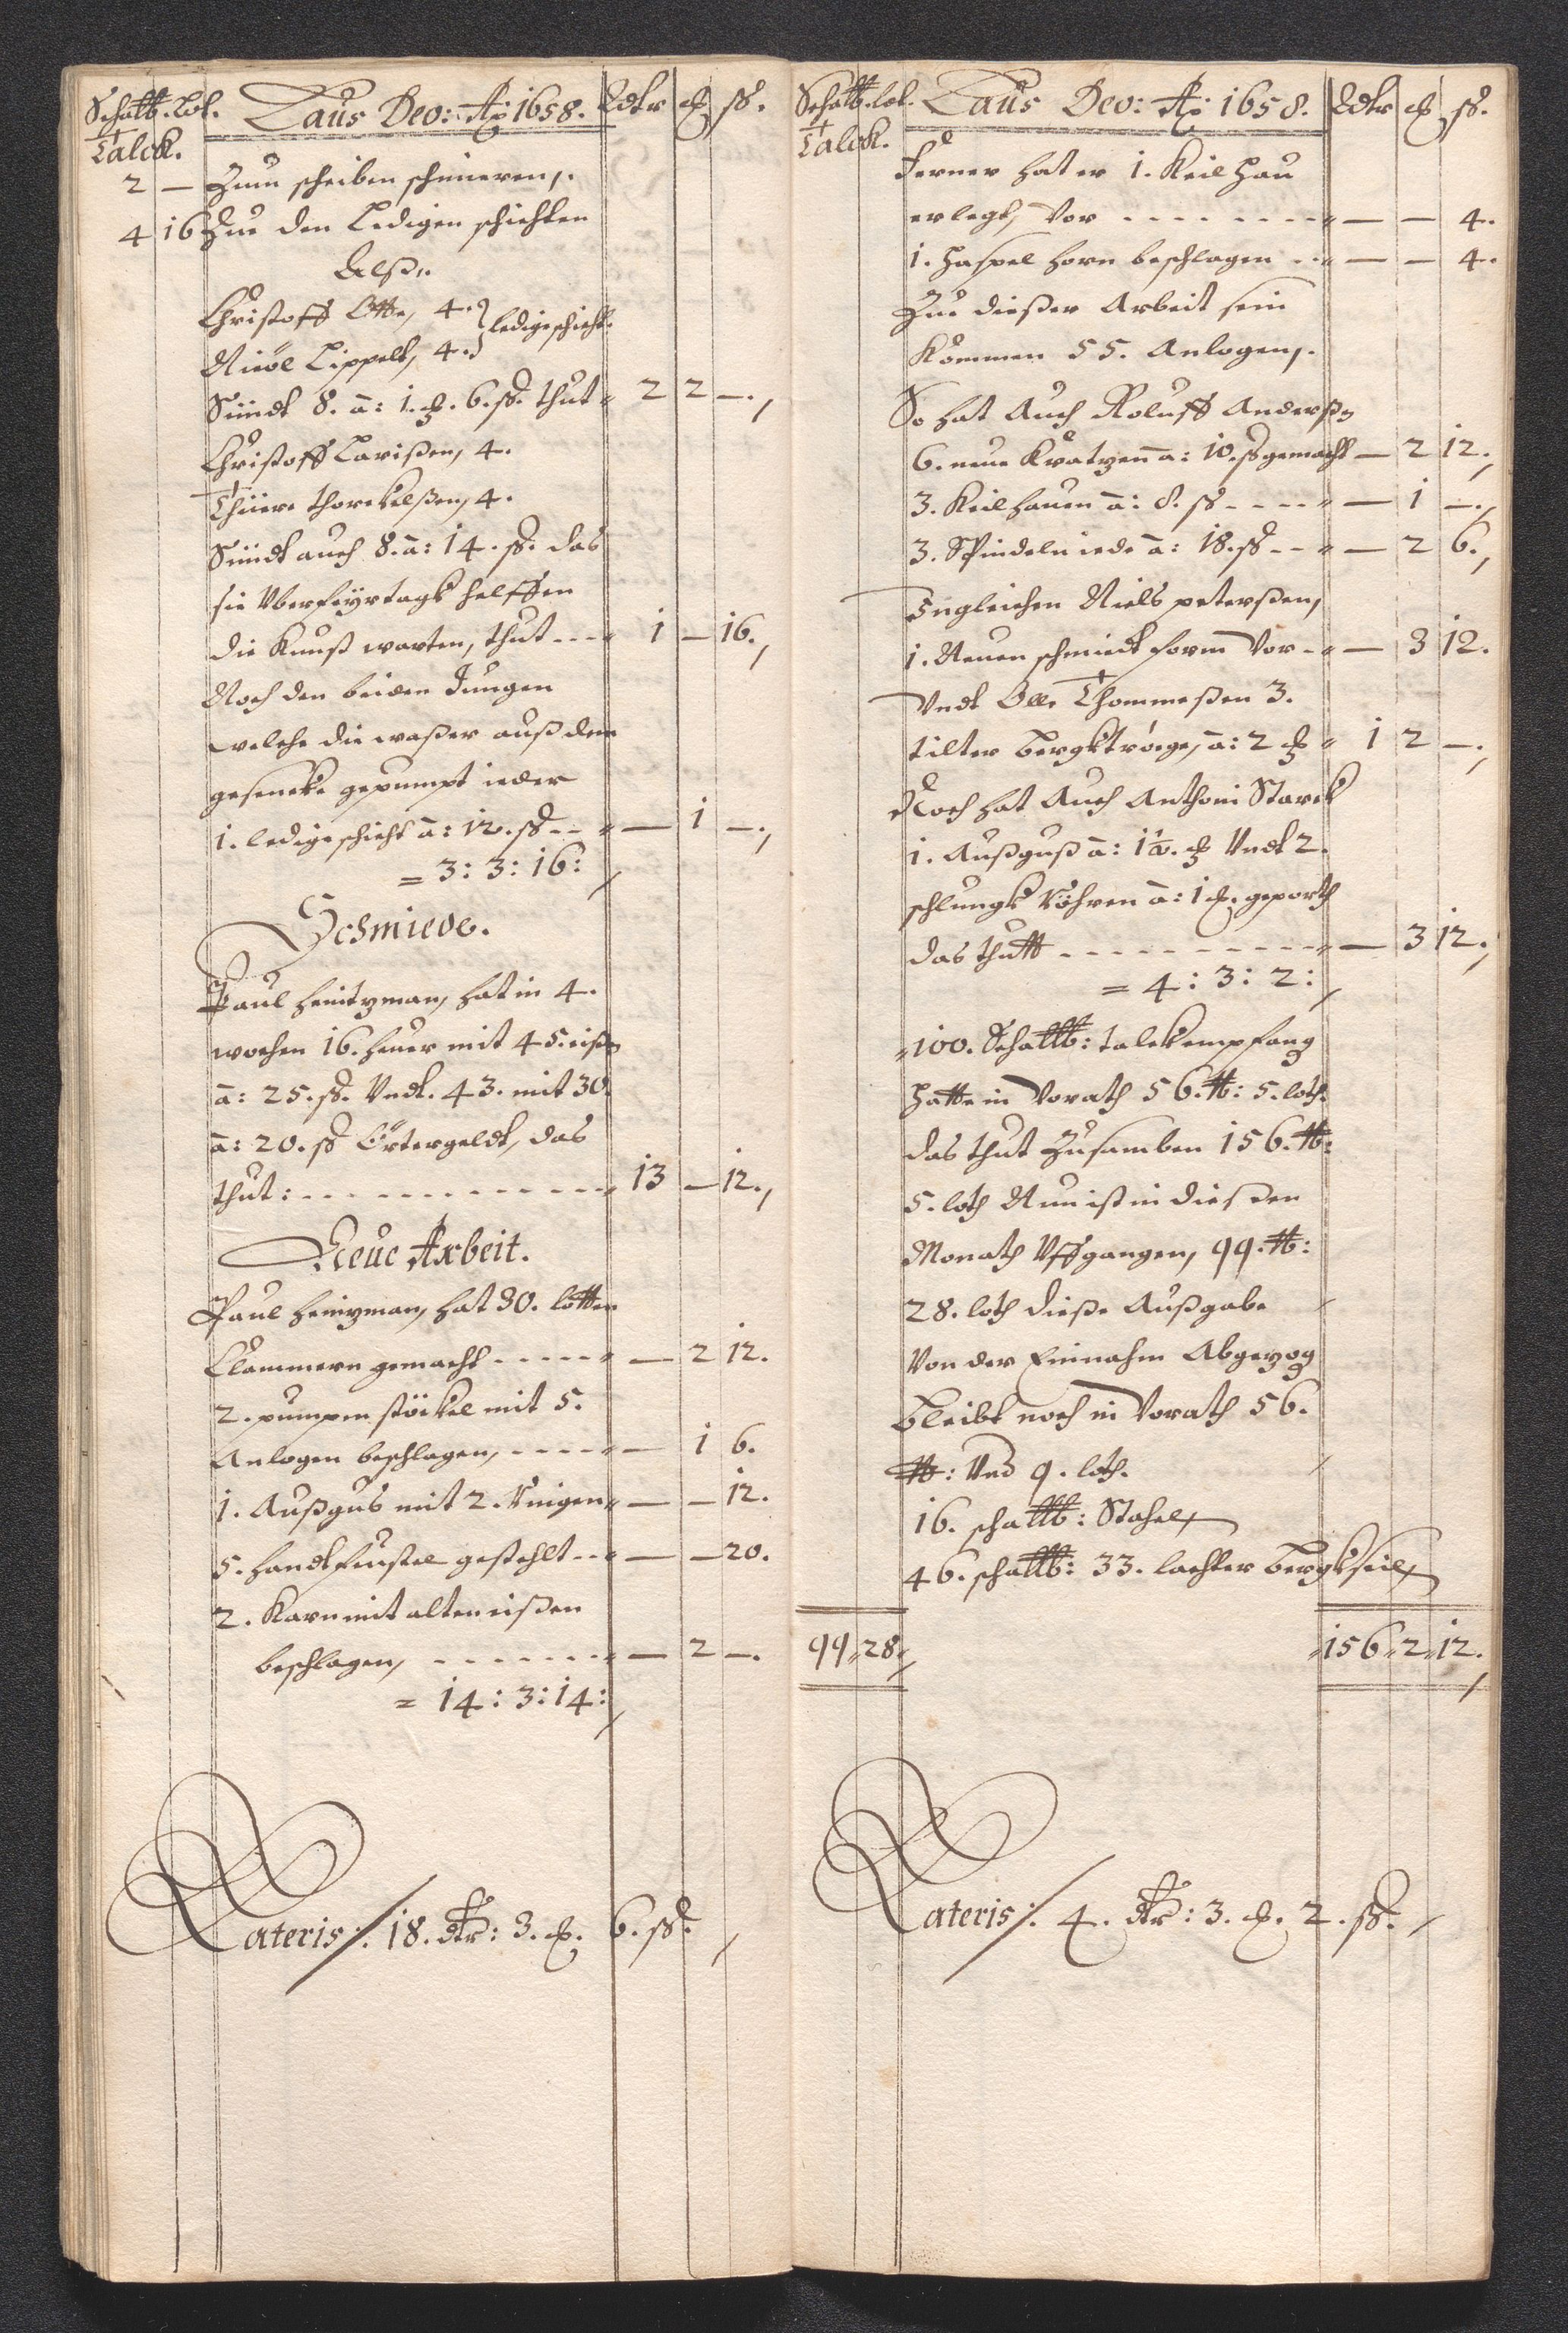 Schal℔. Lot. Laus Deo: Ao 1658. Rdlr ȹ ß.
Talck.
2 — Zum scheiben schmieren,.
4 16 Zue den Ledigen schichten
Alß,.
Christoff Otte, 4.
Nicol Lippelt, 4. } ledigeschicht.
Sündt 8. ā: 1. ȹ. 6. ß. thut 2 2 —.,
Christoff Larißen, 4.
Thüere thorckelßen, 4.
Sündt auch 8. ā: 14. ß. das
sie Vberfeyrtagk helffen
die Kunst warten, thut --- 1 — 16.,
Noch den beiden Jungen
welche die waßer auß dem
gesencke gepumpt ieder
1. ledige schicht ā: 12. ß -- — 1 —.,
= 3: 3: 16:
Schmiede.
Paul heintzman, hat in 4.
wochen 16. heuer mit 45. eißen
ā: 25. ß. Vndt. 43. mit 30.
ā: 20. ß Örtergeldt, das
thut: ------------ 13 — 12.,
Neue Arbeit.
Paul heinzman, hat 30. lotten
Clammern gemacht ----- — 2 12.
2. pumpen stöckel mit 5.
Anlogen beschlagen, ----- — 1 6.
1. Außgus mit 2. Ringen — — 12.
5. handtfeustel gestehlt -- — — 20.
2. Karn mit alten eißen
beschlagen, ------- — 2 —.
= 14: 3: 14:
Lateris:/. 18. dlr: 3. ȹ. 6. ß.
Schal℔. lot. Laus Deo: Ao 1658. Rdlr ȹ ß.
Talck.
Ferner hat er 1. Keilhau
erlegt, Vor -------- — — 4.
1. Haspel horn beschlagen -- — — 4.
Zue dießer Arbeit sein
Kommen 55. Anlogen,.
So hat Auch Roluff Anderßen
6. neue Kratzenn ā: 10. ß gemacht — 2 12.,
3. Keilhauen ā: 8. ß ---- — 1 —.,
3. Spindeln iede ā: 18. ß -- — 2 6.,
Ingleichen Niels peterßen,
1. Neuen schmiedt form Vor -- — 3 12.
Vndt Olle Thommeßen 3.
tilter bergktröge, ā: 2 ȹ 1 2 —.,
Noch hat Auch Anthoni Starck
1. Außguß ā: 1½. ȹ Vndt 2.
schlungk Röhren ā: 1 ȹ. geporth
das thutt ---------- — 3 12.,
= 4: 3: 2:
100. Schal℔: talck empfang
hatte in Vorath 56. ℔: 5. loth.
das thut Zusamben 156. ℔:
5. loth Nun ist in dießen
Monath Vffgangen, 99. ℔:
28. loth dieße Außgabe
Von der Einnahm Abgezog
bleibt noch in Vorath 56.
℔: Und 9. loth.
16. schal℔: Stahel,
46. schal℔: 33. lachter bergkseil,
99 28 156 2 12.
Lateris:/. 4. dlr: 3. ȹ. 2. ß.